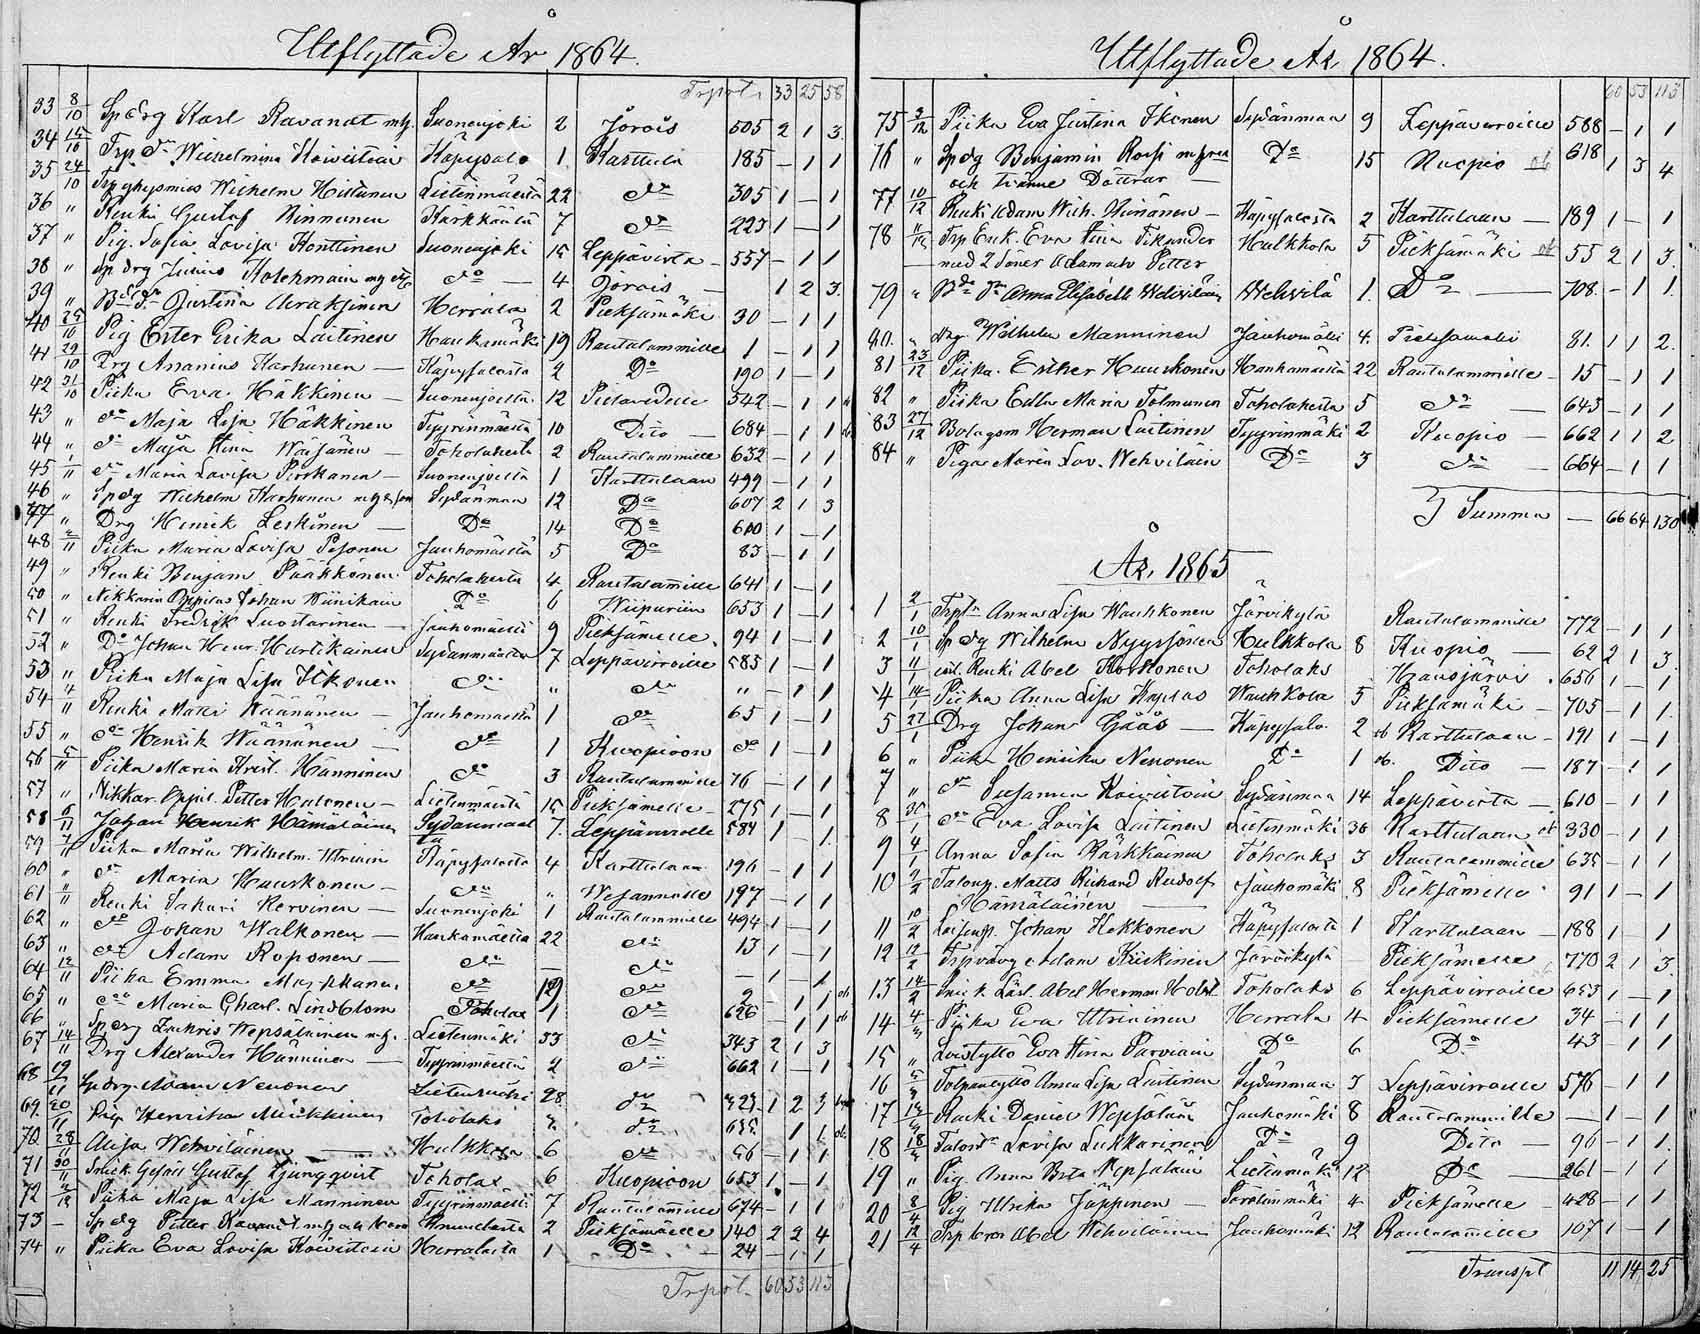 Utflyttade År 1864.
Trpot. 33 25 58
33 8/10 Spdrg Karl Ravandt m. hj. Suonenjoki 2 Jorois 505 2 1 3
34 15/10 Trp dr Wilhelmina Koivistoin Käpysalo 1 Karttula 185 – 1 1
35 24/10 Wilhelm Hiltunen Lietenmäestä 22 do 305 1 – 1
36 " Renki Gustaf Rinnunen Kärkkäälä 7 do 223 1 – 1
37 " Pig. Sofia Lovisa Konttinen Suonenjoki 15 Leppävirta 557 – 1 1
38 " Sp drg Junius Kolehmain do 4 Jorois – 1 2 3
39 " Justina Airaksinen Herrala 2 Pieksämäki 30 – 1 1
40 25/10 Pig Ester Erika Laitinen Haukamäki 19 Rautalammille 1 – 1 1
41 29/10 Drg Ananius Karhunen – Käpysalosta 2 Do 190 1 – 1
42 31/10 Piika Eva Häkkinen – Suonenjoelta 12 Pielavedelle 542 – 1 1
43 " do Maja Lisa Häkkinen Tyyrinmäestä 10 Dito – 684 – 1 1
44 " do Maja Stina Wäisänen – Toholahesta 2 Rautalammille 632 – 1 1
45 1/11 do Maria Lovisa Pirskanen – Suonenjoelta 1 Karttulaan 499 – 1 1
46 " Spdg Wilhelm Karhunen Sydänmaa 12 Do 607 2 1 3
47 " Drg Henrik Leskinen – Do 14 Do 600 1 – 1
48 2/11 Piika Maria Lovisa Pesonen Jauhomäestä 5 Do 83 – 1 1
49 " Renki Benjam. Pääkkönen Toholahesta 4 Rautalammille 641 1 – 1
50 " Nikkarin Oppilas Johan Wiinikain Do 6 Wiipuriin 653 1 – 1
51 " Renki Fredrik Luostarinen – Jauhomäestä 9 Pieksämelle 94 1 – 1
52 " Do Johan Henr. Hartikainen Sydänmaasta 7 Leppävirroille 585 1 – 1
53 " Piika Maja Lisa Ikonen do " do " – 1 1
54 4/11 Renki Matti Wäänänen – Jauhomäestä 1 do 65 1 – 1
55 " do Henrik Wäänänen – do 1 Kuopioon do 1 – 1
56 5/11 Piika Maria Krist. Hänninen do 3 Rautalammille 76 – 1 1
57 " Nikkar. Oppil. Petter Halonen – Lietenmäestä 15 Pieksämelle 275 1 – 1
58 6/11 Johan Henrik Hämäläinen Sydänmaasta 7. Leppävirroille 584 1 – 1
59 7/11 Piika Maria Wilhelm. Utriain Käpysalosta 4 Karttulaan 196 – 1 1
60 " do Maria Huuskonen – do " Wesannolle 197 – 1 1
61 " Renki Sakari Kervinen – Suonenjoki 1 Rautalammille 494 1 – 1
62 " do Johan Walkonen – Haukamäestä 22 do 13 1 – 1
63 " do Adam Roponen – do – do – 1 – 1
64 12/11 Piika Emma do 19 do 2 – 1 1
65 " do Maria Charl. Lindblom Toholax 1 do 626 – 1 1
66 " Sp drg Zachris Wepsäläinen m. hj. Lietenmäki 33 do 343 2 1 3
67 14/11 Drg Alexander Hänninen – Tyyrinmäestä 2 do 662 1 – 1
68 19/11 Spdrg Adam Nenonen Lietenmäki 28 do 323 1 2 3
69 20/11 Pig Henrika Miekkinen Toholaks do 1 1
70 28/11 Anna Wehviläinen – Hulkkola 6 do 56 – 1 1
71 30/11 Snick. Gesäll Gustaf Ljungqvist Toholax 6 Kuopioon 653 1 – 1
72 2/12 Piika Maja Lisa Manninen Tyyrinmäestä 7 Rautalammille 674 – 1 1
73 – Spdg Petter Ravandt 2 Pieksämäelle 140 2 2 4
74 " Piika Eva Lovisa Koivistoin Herralasta 1 Do – 24 – 1 1
Trpot. 60 53 113
Utflyttade År 1864.
60 53 113
75 3/12 Piika Eva Justina Ikonen Sydänmaa 9 Leppävirroille 588 – 1 1
76 " Spdg Benjamin Rossi m. hustru Do 15 Kuopio ob 618 1 3 4
och tvänne Döttrar –
77 10/12 Renki Adam Wilh. Kiinänen – Käpysalosta 2 Karttulaan – 189 1 – 1
78 Trp Enk. Eva Stina Tikander Hulkkola 5 Pieksämäki ob 55 2 1 3
med 2 söner Adam och Petter
79 " Anna Elisabeth Wehviläin Wehvilä 1. Do – 708 – 1 1
80. " drg Wilhelm Manninen Jauhomäki 4. Pieksämäki 81. 1 1 2.
81 23/12 Piika. Esther Huuskonen Haukamäestä 22 Rautalammille – 15 – 1 1
82 " Piika Edla Maria Tolmunen Toholahesta 5 do – 643 – 1 1
83 27/12 Bolagsm Herman Laitinen Tyyrinmäki 2 Kuopio – 662 1 1 2
84 " Piga Maria Lov. Wehviläin Do 3 do – 664 – 1 1
Summa – 66 64 130
År 1865
1 2/1 Anna Lisa Wauhkonen Järvikylä Rautalammille 772 – 1 1
2 10/1 Sp dg Wilhelm Nyyssönen Hulkkola 8 Kuopio – 62 2 1 3
3 11/1 Renki Abel Korhonen Toholaks Hausjärvi 656 1 – 1
4 14/1 Piika Anna Lisa Wauhkola 5 Pieksämäki – 705 – 1 1
5 27/1 Drg Johan Gåås – Käpysalo 2 ob Karttulaan – 191 1 – 1
6 " Piika Henrika Nenonen Do 1 ob. Dito – 187 – 1 1
7 " do Susanna Koivistoin Sydänmaa 14 Leppävirta – 610 – 1 1
8 do Eva Lovisa Laitinen Lietenmäki 30 Karttulaan ob 330 – 1 1
9 4/1 Anna Sofia Kärkkäinen Toholaks 3 Rautalammille 635 – 1 1
10 2/2 Taloup. Matts Richard Rudolf Jauhomäki 8 Pieksämelle 91 1 – 1
Hämäläinen –
11 10/2 Johan Kekkonen Käpysalosta 1 Karttulaan – 188 1 – 1
12 12/2 Trpvävy Adam Kiiskinen Järvikylä Pieksämelle 770 2 1 3
13 14/2 Abel Herman Holst Toholaks 6 Leppävirroille 653 1 – 1
14 Piika Eva Utriainen Herrala 4 Pieksämelle 34 – 1 1
15 " Eva Stina Parviain Do 6 Do 43 – 1 1
16 Anna Lisa Laitinen Sydänmaa 3 Leppävirroille 576 – 1 1
17 Renki Daniel Wepsäläin Jauhomäki 8 Rautalammille – 1 – 1
18 Lovisa Lukkarinen Do 9 Dito – 96 – 1 1
19 " Pig. Anna Brta Wepsäläin Lietenmäki 12 Do – 261 – 1 1
20 8/4 Pig Ulrika Jäppinen – 4 Pieksämelle – 428 – 1 1
21 12/4 Abel Wehviläinen Jauhomäki 12 Rautalammille 107 1 – 1
Transpt 11 14 25